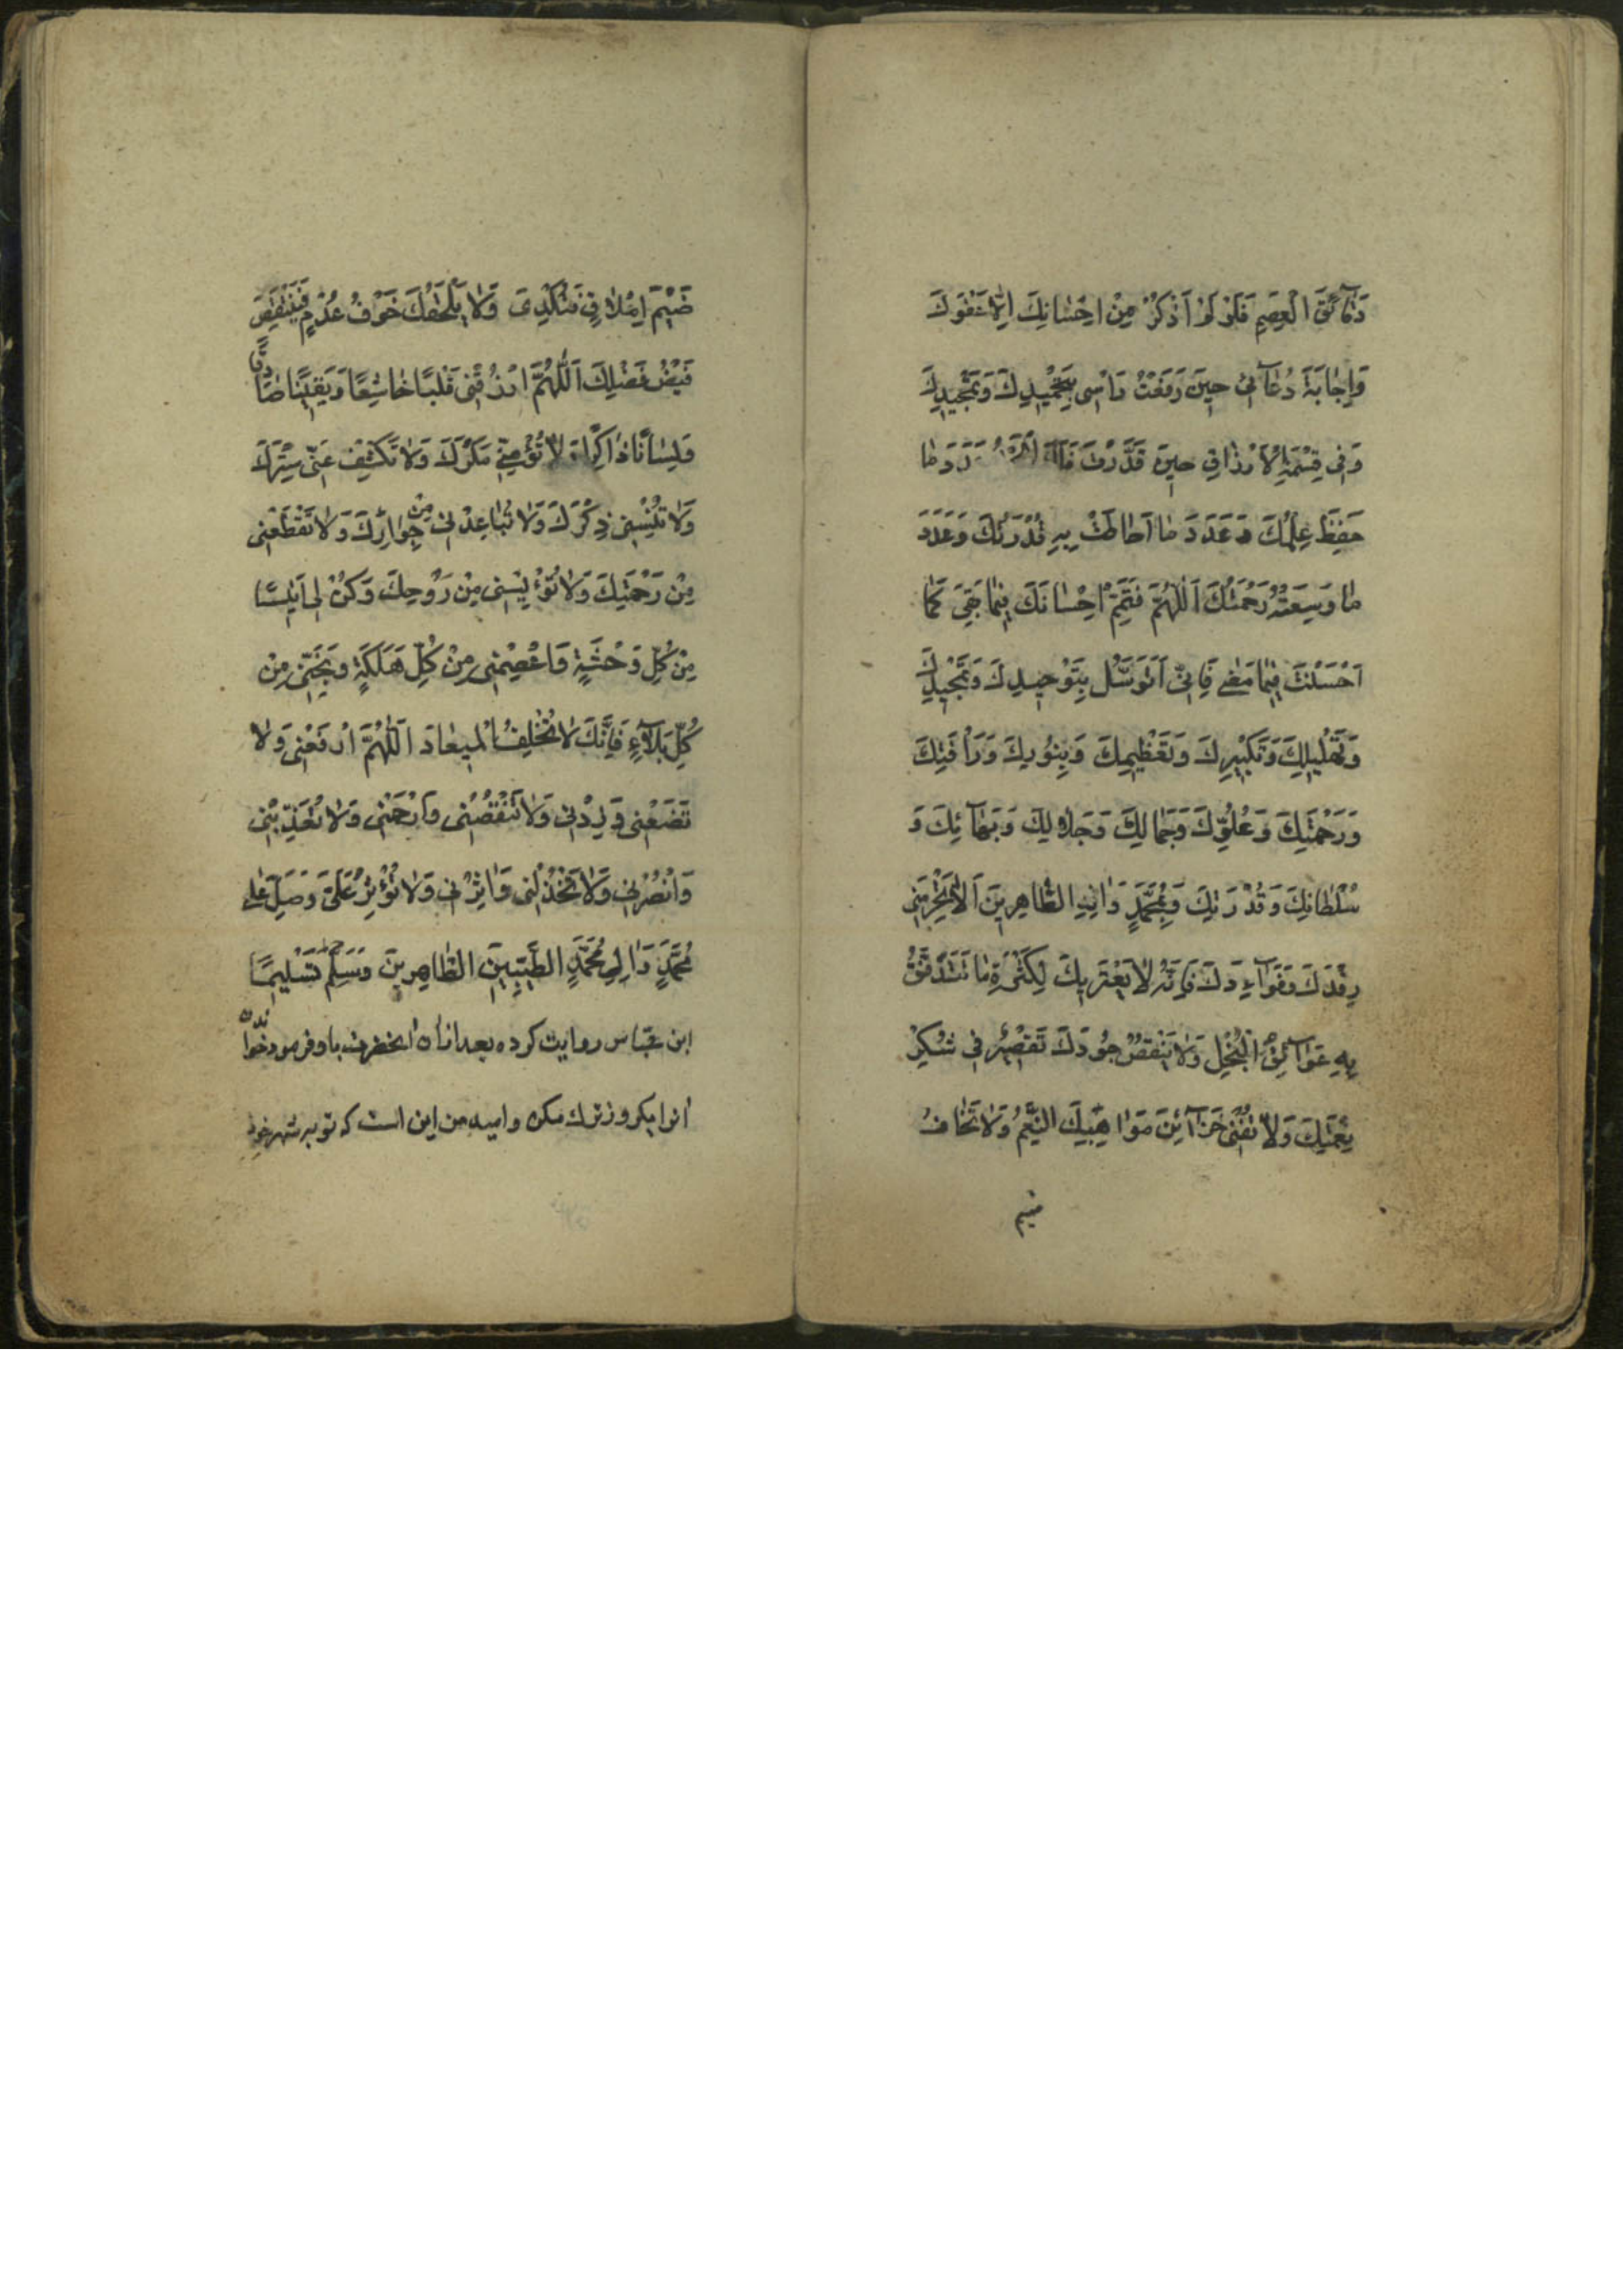 دَقَآئِقَ الْعِصَمِ فَلَوْ لَمْ اَذْكُرْ مِنْ اِحْسٰانِكَ اِلّٰا عَفْوَكَ
وَاِجٰابَةَ دُعٰآئى حينَ رَفَعْتُ رَاْسى بِتَحْميدِكَ وَتَمْجيدِكَ
وَفى قِسْمَةِ الْاَرْزٰاقِ حينَ قَدَّرْتَ فَلَكَ الْحَمْدُ عَدَدَ مٰا
حَفِظَ عِلْمُكَ وَعَدَدَ مٰا اَحٰاطَتْ بِهِ قُدْرَتُكَ وَعَدَدَ
مٰا وَسِعَتْهُ رَحْمَتُكَ اَللّٰهُمَّ فَتَمِّمْ اِحْسٰانَكَ فيمٰا بَقِىَ كَمٰا
اَحْسَنْتَ فيمٰا مَضٰى فَاِنّى اَتَوَسَّلُ بِتَوْحيدِكَ وَتَمْجيدِكَ
وَتَهْليلِكَ وَتَكْبيرِكَ وَتَعْظيمِكَ وَبِنُورِكَ وَرَاْفَتِكَ
وَرَحْمَتِكَ وَعُلُوِّكَ وَجَمٰالِكَ وَجَلٰالِكَ وَبَهٰآئِكَ وَ
سُلْطٰانِكَ وَقُدْرَتِكَ وَبِمُحَمَّدٍ وَاٰلِهِ الطّٰاهِرينَ اَلّٰا تَحْرِمَنى
رِفْدَكَ وَفَوٰآءِدَكَ فَاِنَّهُ لٰا يَعْتَريكَ لِكَثْرَةِ مٰا تَتَدَفَّقُ
بِهِ عَوٰآئِقُ الْبُخْلِ وَلٰا يَنْقُصُ جُودَكَ تَقْصيرٌ فى شُكْرِ
نِعْمَتِكَ وَلٰا تُفْنى خَزٰآئِنَ مَوٰاهِبِكَ النِّعَمُ وَلٰا تَخٰافُ
ضيم
ضَيْمَ اِمْلٰاقٍ فَتُكْدِىَ وَلٰا يَلْحَقُكَ خَوْفُ عُدْمٍ فَيَنْقُصَ
فَيْضُ فَضْلِكَ اَللّٰهُمَّ ارْزُقْنى قَلْبًا خٰاشِعًا وَيَقينًا صٰادِقًا
وَلِسٰانًا ذٰاكِرًا وَلٰا تُؤْمِنّى مَكْرَكَ وَلٰا تَكْشِفْ عَنّى سِتْرَكَ
وَلٰا تُنْسِنى ذِكْرَكَ وَلٰا تُبٰاعِدْنى مِنْ جِوٰارِكَ وَلٰا تَقْطَعْنى
مِنْ رَحْمَتِكَ وَلٰا تُؤْيِسْنى مِنْ رَوْحِكَ وَكُنْ لى اَنيسًا
مِنْ كُلِّ وَحْشَةٍ وَاعْصِمْنى مِنْ كُلِّ هَلَكَةٍ وَنَجِّنى مِنْ
كُلِّ بَلٰآءٍ فَاِنَّكَ لٰا تُخْلِفُ الْميعٰادَ اَللّٰهُمَّ ارْفَعْنى وَلٰا
تَضَعْنى وَزِدْنى وَلٰا تَنْقُصْنى وَارْحَمْنى وَلٰا تُعَذِّبْنى
وَانْصُرْنى وَلٰا تَخْذُلْنى وَاٰثِرْنى وَلٰا تُؤْثِرْ عَلَىَّ وَصَلِّ عَلٰى
مُحَمَّدٍ وَاٰلِ مُحَمَّدٍ الطَّيِّبينَ الطّٰاهِرينَ وَسَلِّمْ تَسْليمًا
ابن عبّاس روايت كرده بعد از آن آنحضرت باو فرمود بخوان
آنرا بيكروز ترك مكن واميد من اين است كه تو بر شهر خود